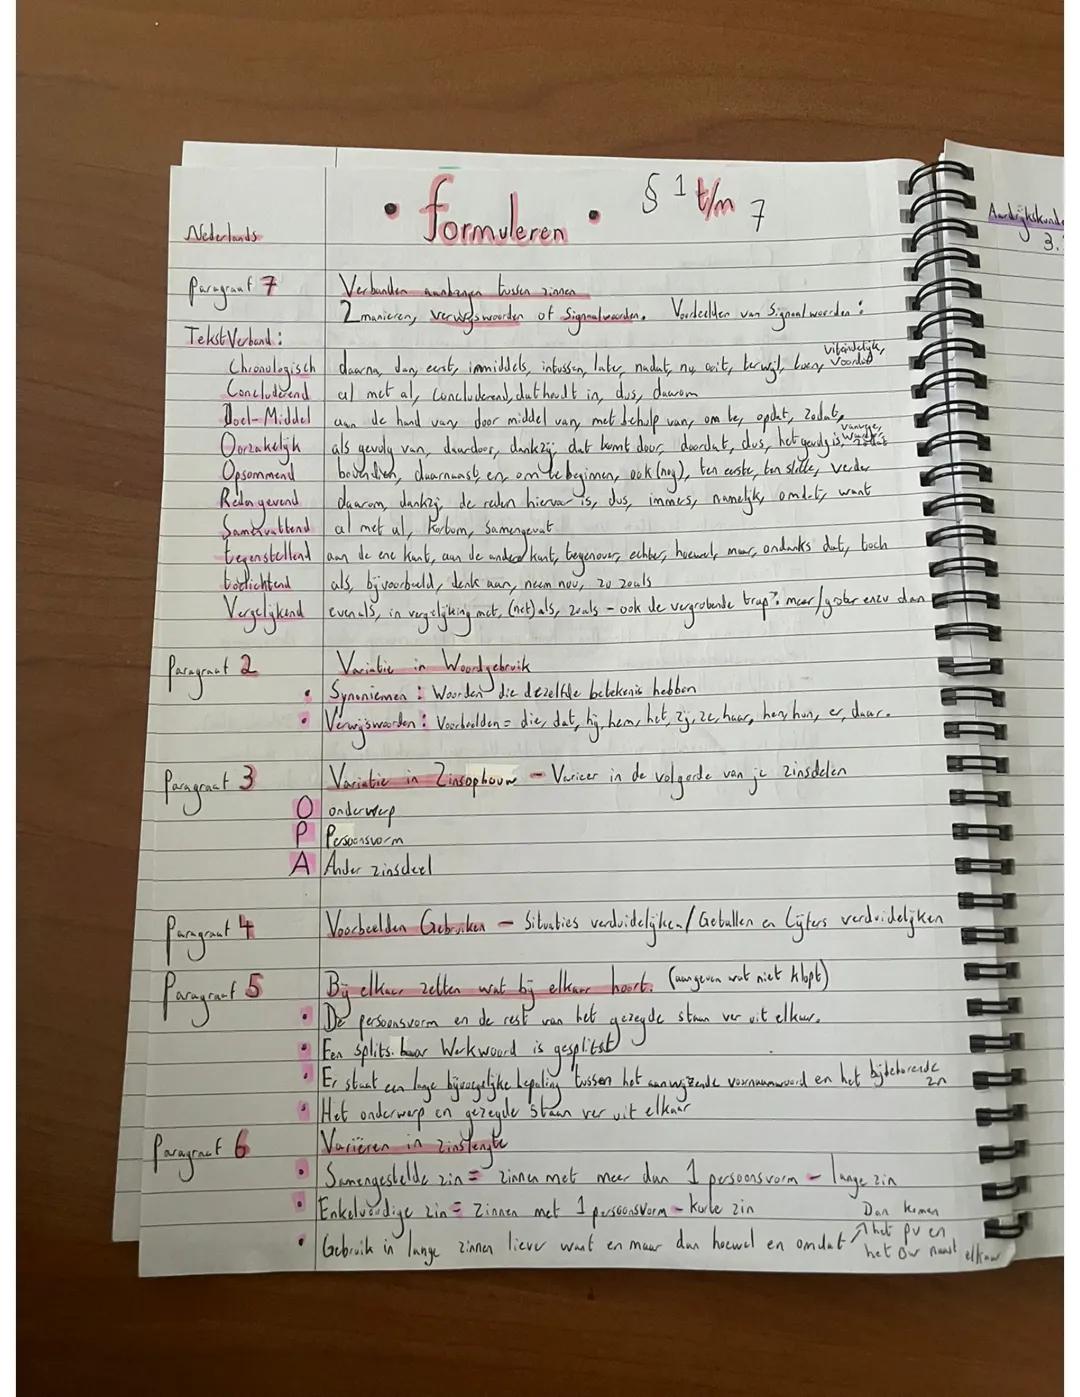 Nederlands
• formuleren • § 1 t/m 7
Aardrijkskunde
3.
Paragraaf 7 Verbanden aanbrengen tussen zinnen
2 manieren, verwijswoorden of Signaalwoorden. Voorbeelden van Signaalwoorden:
TekstVerband:
Chronologisch daarna, dan, eerst, inmiddels, intussen, later, nadat, nu, ooit, terwijl, toen, Uiteindelijk, Voordat
Concluderend al met al, Concluderend, dat houdt in, dus, daarom
Doel-Middel aan de hand van, door middel van, met behulp van, om te, opdat, zodat,
Oorzakelijk als gevolg van, daardoor, dankzij, dat komt door, doordat, dus, het gevolg is, vanwege, zodat
Opsommend bovendien, daarnaast, en, om te beginnen, ook (nog), ten eerste, ten slotte, verder
Redengevend daarom, dankzij, de reden hiervoor is, dus, immers, namelijk, omdat, want
Samenvattend al met al, kortom, samengevat
tegenstellend aan de ene kant, aan de andere kant, tegenover, echter, hoewel, maar, ondanks dat, toch
toelichtend als, bijvoorbeeld, denk aan, neem nou, zo zoals
Vergelijkend evenals, in vergelijking met, (net) als, zoals - ook de vergrotende trap: meer/groter enzv dan
Paragraaf 2 Variatie in Woordgebruik
• Synoniemen: Woorden die dezelfde betekenis hebben
• Verwijswoorden: Voorbeelden = die, dat, hij, hem, het, zij, ze, haar, hen, hun, er, daar.
Paragraaf 3 Variatie in Zinsopbouw - Varieer in de volgorde van je zinsdelen
O onderwerp
P Persoonsvorm
A Ander zinsdeel
Paragraaf 4 Voorbeelden Gebruiken - Situaties verduidelijken/Getallen en Cijfers verduidelijken
Paragraaf 5 Bij elkaar zetten wat bij elkaar hoort. (aangeven wat niet klopt)
• De persoonsvorm en de rest van het gezegde staan ver uit elkaar.
• Een splitsbaar Werkwoord is gesplitst
• Er staat een lange bijvoegelijke bepaling tussen het aanwijzende voornaamwoord en het bijbehorende zn
• Het onderwerp en gezegde staan ver uit elkaar
Paragraaf 6 Variëren in zinslengte
• Samengestelde zin = zinnen met meer dan 1 persoonsvorm - lange zin
• Enkelvoudige zin = Zinnen met 1 persoonsvorm - korte zin
• Gebruik in lange zinnen liever want en maar dan hoewel en omdat
Dan komen
het pv en
het Ow naast elkaar